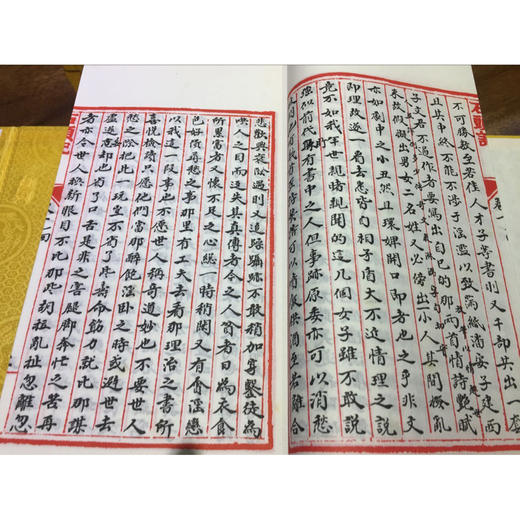 石頭記
不可勝數至若佳人才子等書則又千部共出一套
且其中終不能不涉于淫濫以致滿紙潘安子建西
子文君不過作者要寫出自己的那兩首情詩艷賦
來故假擬出男女二人名姓又必傍出小人其間撥亂
亦如劇中之小丑然且環婢開口即者也之乎非文
即理故逐一看去悉皆自相矛盾大不近情理之說
竟不如我半世親睹親聞的這几個女子雖不敢說
強似前代所有書中之人但事跡原委亦可以消愁
可以噴飯供酒至若離合
悲歡興衰際遇則又追踪躡跡不敢稍加穿鑿徒為
哄人之目而反失其真傳者今之人貧者日為衣食
所累富者又懷不足之心縱一時稍閑又有貪淫戀
色好貨尋愁之事那里有工夫去看那理治之書所
以我這一段事也不愿世人稱奇道妙也不要世人
喜悅檢讀只愿他們當那醉飽淫臥之時或避世去
愁之際把此一玩豈不省了些壽命筋力就比那謀
虛逐妄却也省了口舌是非之害腿脚奔忙之苦再
者亦令世人換新眼目不比那些亂扯忽離忽